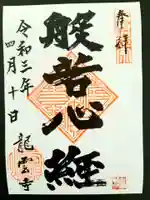 奉拝
般若心経
令和三年
四月十日
龍雲寺